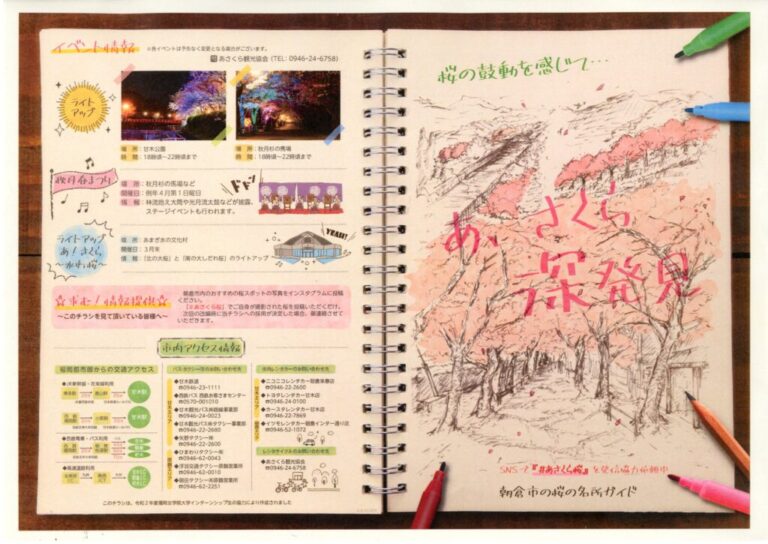 イベント情報
※各イベントは予告なく変更となる場合がございます。
問 あさくら観光協会（TEL: 0946-24-6758）
ライト
アップ
場 所：甘木公園
時 間：18時頃～22時頃まで
場 所：秋月杉の馬場
時 間：18時頃～22時頃まで
秋月春まつり
場 所：秋月杉の馬場など
開催日：例年４月第１日曜日
情 報：林流抱え大筒や光月流太鼓などが披露、
ステージイベントも行われます。
ドドン
ライトアップ
あ！さくら
～水面に桜～
場 所：あまぎ水の文化村
開催日：３月末
情 報：「北の大桜」と「南の大しだれ桜」のライトアップ
☆求む！情報提供☆
～このチラシを見て頂いている皆様へ～
朝倉市内のおすすめの桜スポットの写真をインスタグラムに投稿
ください。
『#あさくら桜』でご自身が撮影された桜を投稿いただくだけ。
次回の改編時に当チラシへの採用が決定した場合、最連絡させて
いただきます。
市内アクセス情報
福岡都市圏からの交通アクセス
バス・タクシー等のお問い合わせ先
◆甘木鉄道
☎0946-23-1111
◆西鉄バス 西鉄お客さまセンター
☎0570-001010
◆甘木観光バス㈱路線事業部
☎0946-24-0023
◆甘木観光バス㈱タクシー事業部
◆矢野タクシー㈱
☎0946-22-2600
◆ひまわりタクシー㈲
☎0946-62-0043
☎0946-62-0010
☎0946-62-2251
市内レンタカーのお問い合わせ先
◆ニコニコレンタカー朝倉来春店
☎0946-22-2600
◆トヨタレンタカー甘木店
☎0946-24-0100
◆カースタレンタカー甘木店
☎0946-22-7869
☎0946-52-1072
レンタサイクルのお問い合わせ先
◆あさくら観光協会
☎0946-24-6758
このチラシは、令和２年度福岡女学院大学インターンシップ生の協力により作成されました
桜の鼓動を感じて…
あ、さくら
深発見
SNSで『#あさくら桜』を発信協力依頼中
朝倉市の桜の名所ガイド